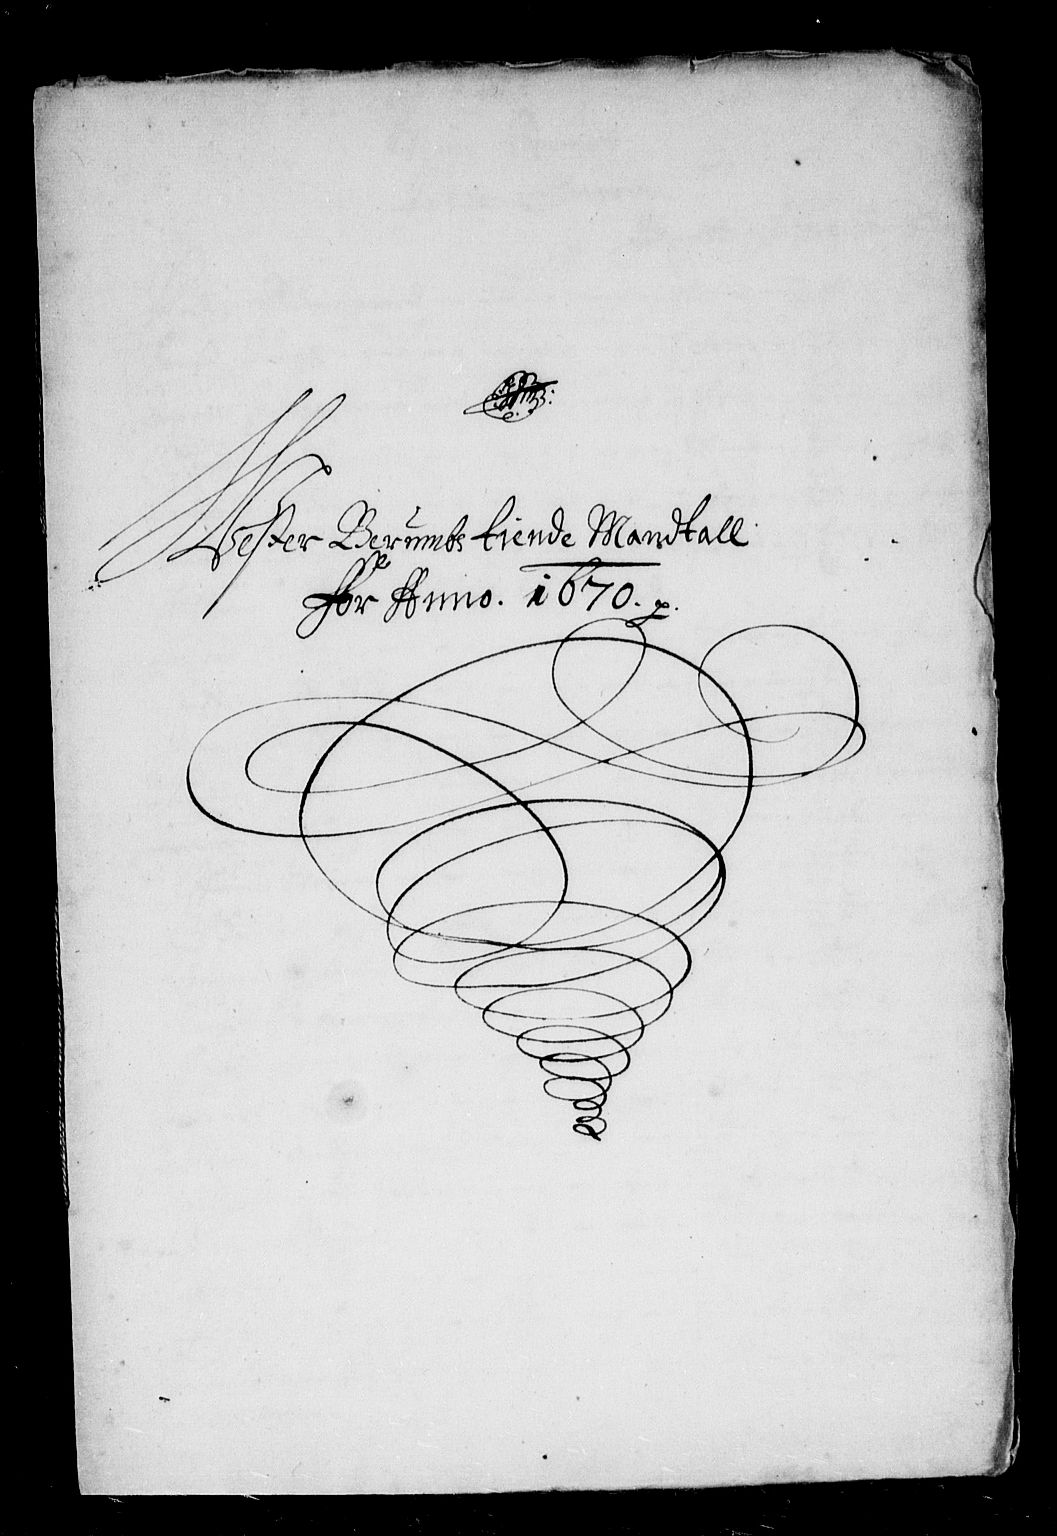 Wester Berumbs tiende Mandtall
for Anno. 1670. p.